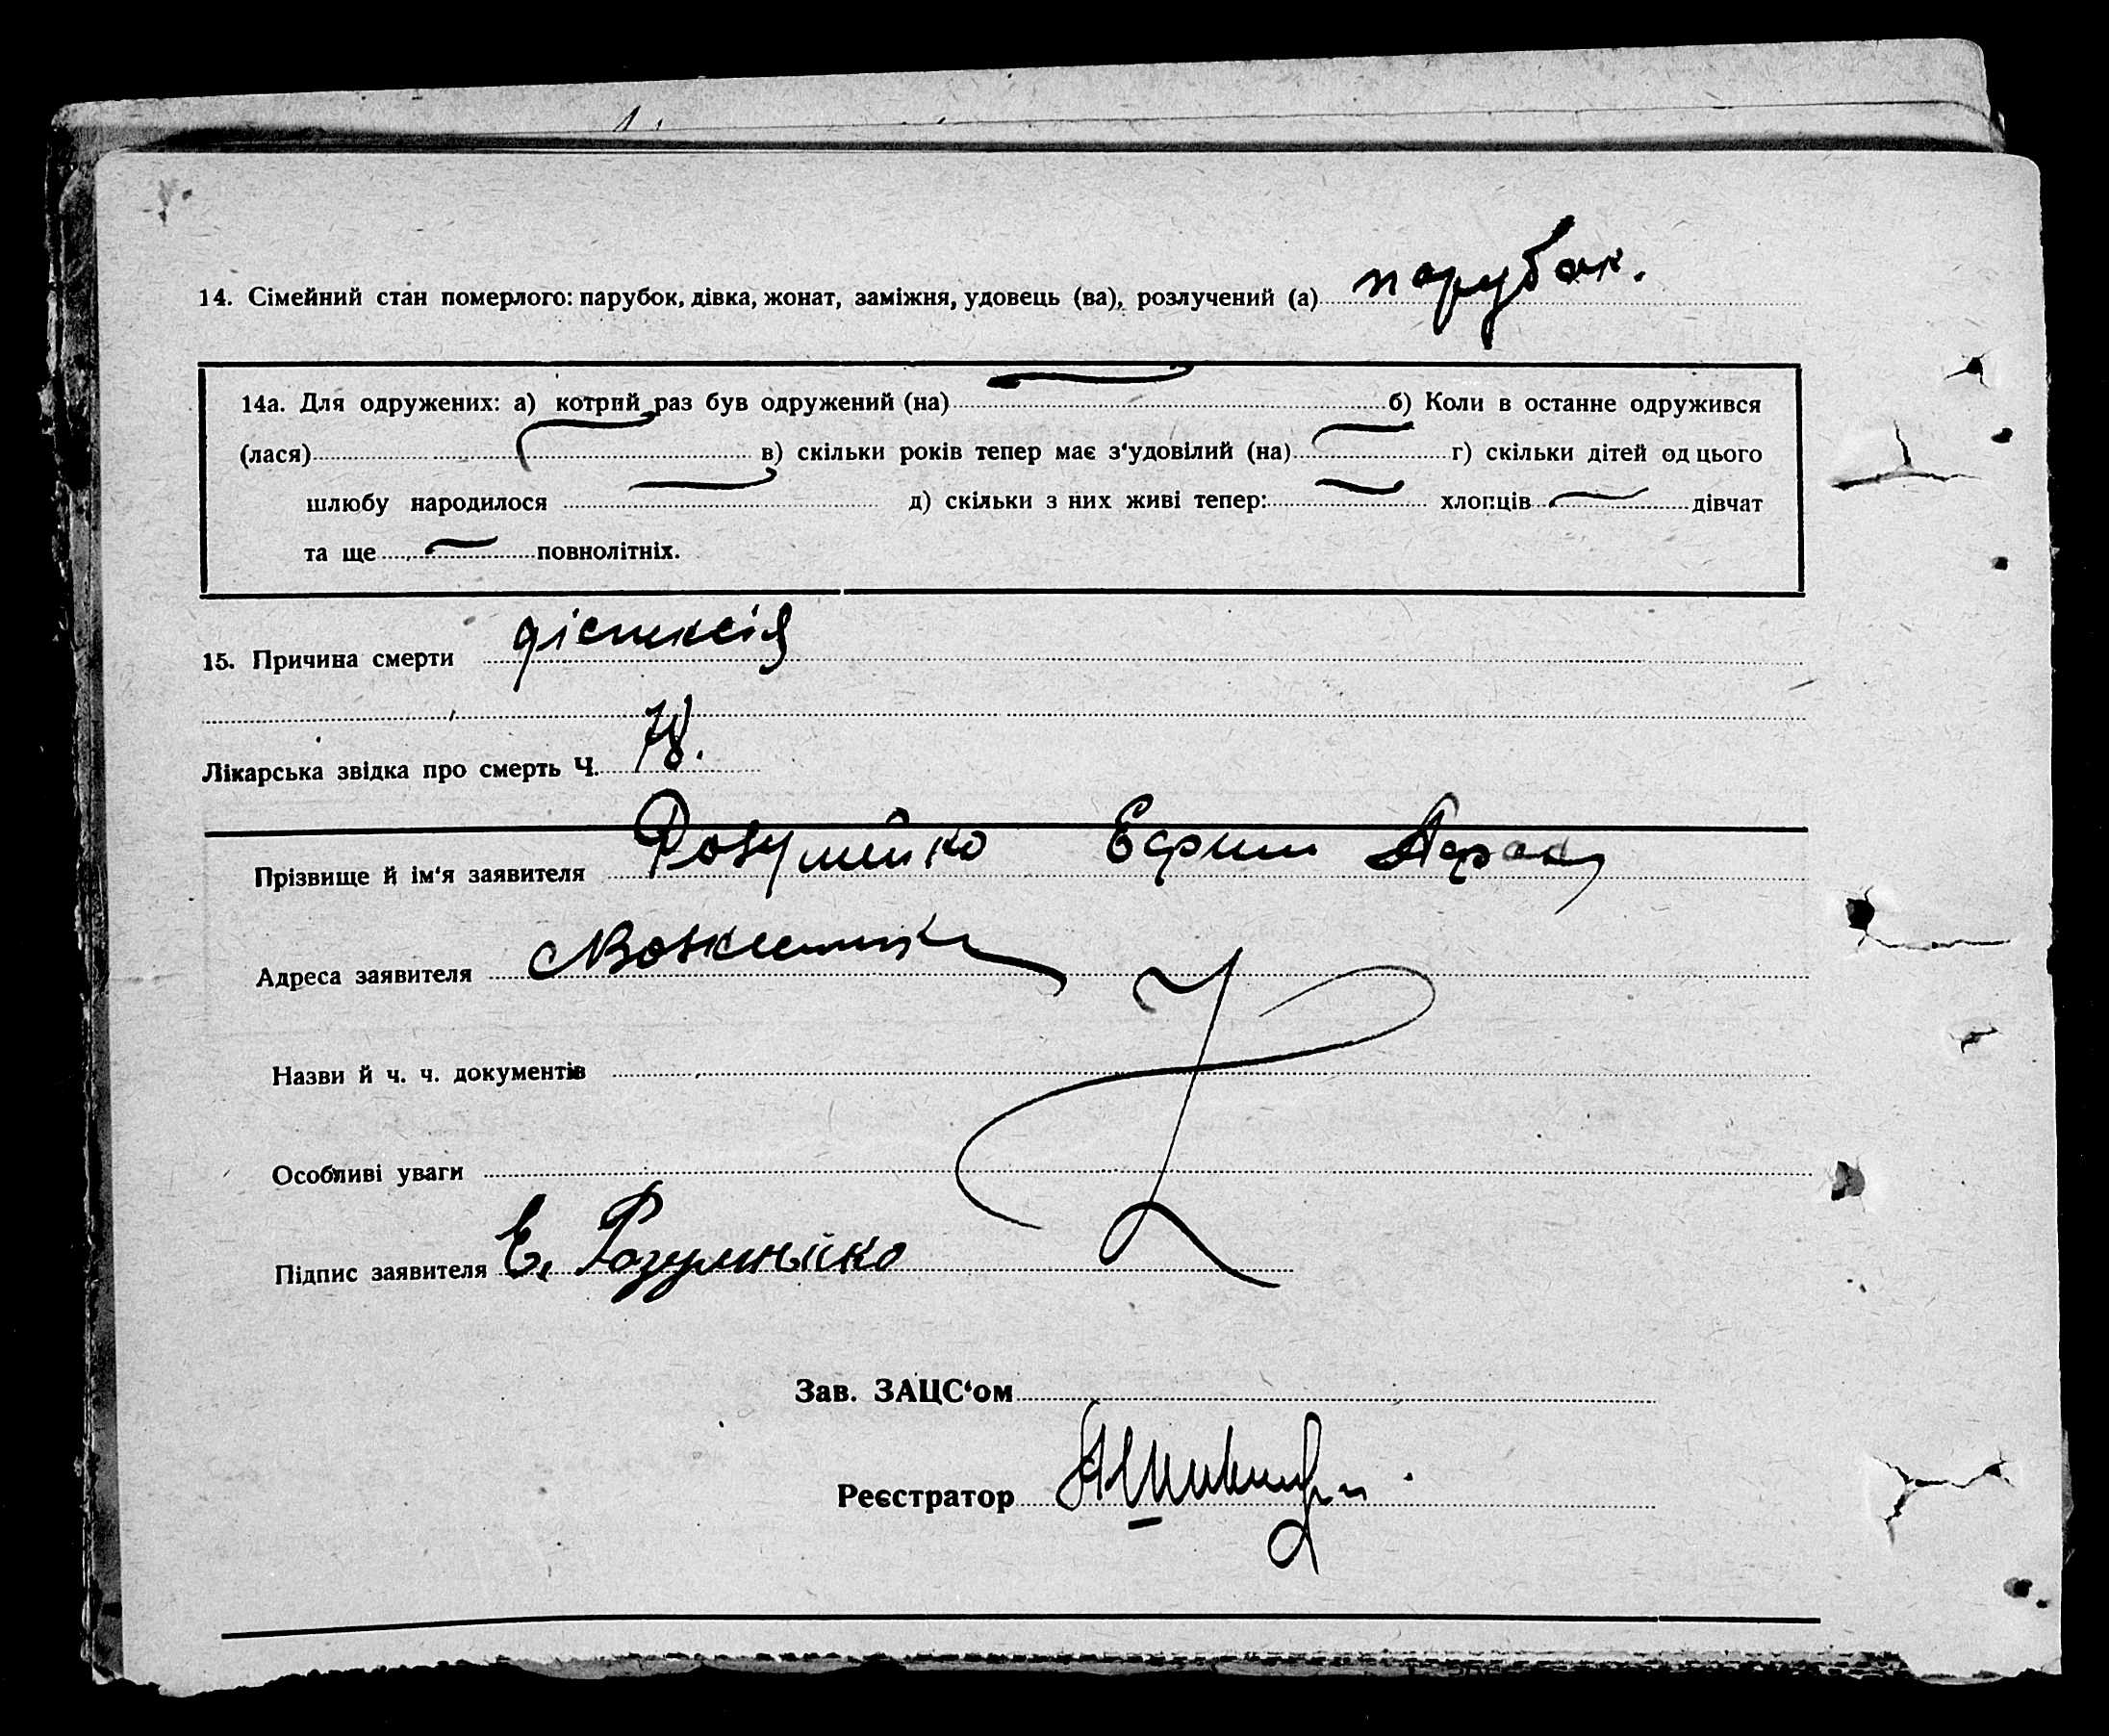 14. Сімейний стан померлого: парубок, дівка, жонат, заміжня, удовець (ва), розлучений (а) парубок.
14а. Для одружених: а) котрий раз був одружений (на) б) Коли в останнє одружився
(лася) в) скільки років тепер має з'удовілий (на) г) скільки дітей од цього
шлюбу народилося д) скільки з них живі тепер: хлопців дівчат
та ще повнолітніх.
15. Причина смерти
Лікарська звідка про смерть Ч. 78.
Прізвище й ім'я заявителя Розумейко Ефрим
Адреса заявителя
Назви й ч. ч. документів
Особливі уваги
Підпис заявителя Е. Розумнійко
Зав. ЗАЦС'ом
Реєстратор